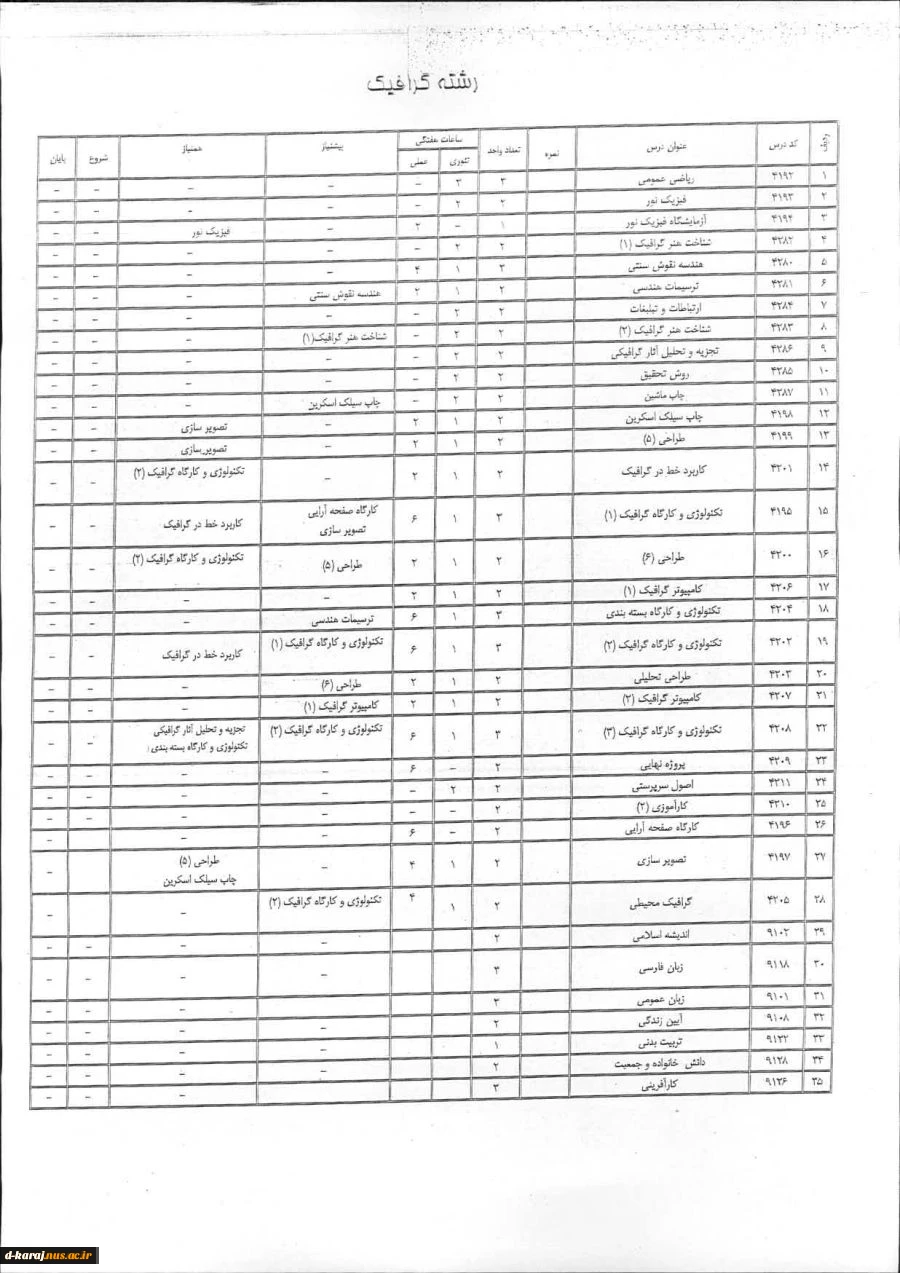 رشته گرافیک
ردیف کد درس عنوان درس نمره تعداد واحد ساعات هفتگی تئوری عملی پیشنیاز همنیاز شروع پایان
۱ ۴۱۹۲ ریاضی عمومی ۳ ۳ – – – – –
۲ ۴۱۹۳ فیزیک نور ۲ ۲ – – – – –
۳ ۴۱۹۴ آزمایشگاه فیزیک نور ۱ – ۲ – فیزیک نور – –
۴ ۴۲۸۲ شناخت هنر گرافیک (۱) ۲ ۲ – – – – –
۵ ۴۲۸۰ هندسه نقوش سنتی ۳ ۱ ۴ – – – –
۶ ۴۲۸۱ ترسیمات هندسی ۲ ۱ ۲ هندسه نقوش سنتی – – –
۷ ۴۲۸۴ ارتباطات و تبلیغات ۲ ۲ – – – – –
۸ ۴۲۸۳ شناخت هنر گرافیک (۲) ۲ ۲ – شناخت هنر گرافیک(۱) – – –
۹ ۴۲۸۶ تجزیه و تحلیل آثار گرافیکی ۲ ۲ – – – – –
۱۰ ۴۲۸۵ روش تحقیق ۲ ۲ – – – – –
۱۱ ۴۲۸۷ چاپ ماشین ۲ ۲ – چاپ سیلک اسکرین – – –
۱۲ ۴۱۹۸ چاپ سیلک اسکرین ۲ ۱ ۲ – تصویر سازی – –
۱۳ ۴۱۹۹ طراحی (۵) ۲ ۱ ۲ – تصویر سازی – –
۱۴ ۴۲۰۱ کاربرد خط در گرافیک ۲ ۱ ۲ – تکنولوژی و کارگاه گرافیک (۲) – –
۱۵ ۴۱۹۵ تکنولوژی و کارگاه گرافیک (۱) ۳ ۱ ۶ کارگاه صفحه آرایی
تصویر سازی کاربرد خط در گرافیک – –
۱۶ ۴۲۰۰ طراحی (۶) ۲ ۱ ۲ طراحی (۵) تکنولوژی و کارگاه گرافیک (۲) – –
۱۷ ۴۲۰۶ کامپیوتر گرافیک (۱) ۲ ۱ ۲ – – – –
۱۸ ۴۲۰۴ تکنولوژی و کارگاه بسته بندی ۳ ۱ ۶ ترسیمات هندسی – – –
۱۹ ۴۲۰۲ تکنولوژی و کارگاه گرافیک (۲) ۳ ۱ ۶ تکنولوژی و کارگاه گرافیک (۱) کاربرد خط در گرافیک – –
۲۰ ۴۲۰۳ طراحی تحلیلی ۲ ۱ ۲ طراحی (۶) – – –
۲۱ ۴۲۰۷ کامپیوتر گرافیک (۲) ۲ ۱ ۲ کامپیوتر گرافیک (۱) – – –
۲۲ ۴۲۰۸ تکنولوژی و کارگاه گرافیک (۳) ۳ ۱ ۶ تکنولوژی و کارگاه گرافیک (۲) تجزیه و تحلیل آثار گرافیکی – –
تکنولوژی و کارگاه بسته بندی
۲۳ ۴۲۰۹ پروژه نهایی ۲ – ۶ – – – –
۲۴ ۴۲۱۱ اصول سرپرستی ۲ ۲ – – – – –
۲۵ ۴۲۱۰ کارآموزی (۲) ۲ – – – – – –
۲۶ ۴۱۹۶ کارگاه صفحه آرایی ۲ – ۶ – – –
۲۷ ۴۱۹۷ تصویر سازی ۲ ۱ ۴ – طراحی (۵) –
چاپ سیلک اسکرین
۲۸ ۴۲۰۵ گرافیک محیطی ۲ ۱ ۴ تکنولوژی و کارگاه گرافیک (۲) – – –
۲۹ ۹۱۰۲ اندیشه اسلامی ۲ – – – –
۳۰ ۹۱۱۸ زبان فارسی ۳ – – – –
۳۱ ۹۱۰۱ زبان عمومی ۳ – – –
۳۲ ۹۱۰۸ آیین زندگی ۲ – – – –
۳۳ ۹۱۲۲ تربیت بدنی ۱ – – – –
۳۴ ۹۱۲۸ دانش خانواده و جمعیت ۲ – – – –
۳۵ ۹۱۲۶ کارآفرینی ۳ – – –
d-karaj.nus.ac.ir